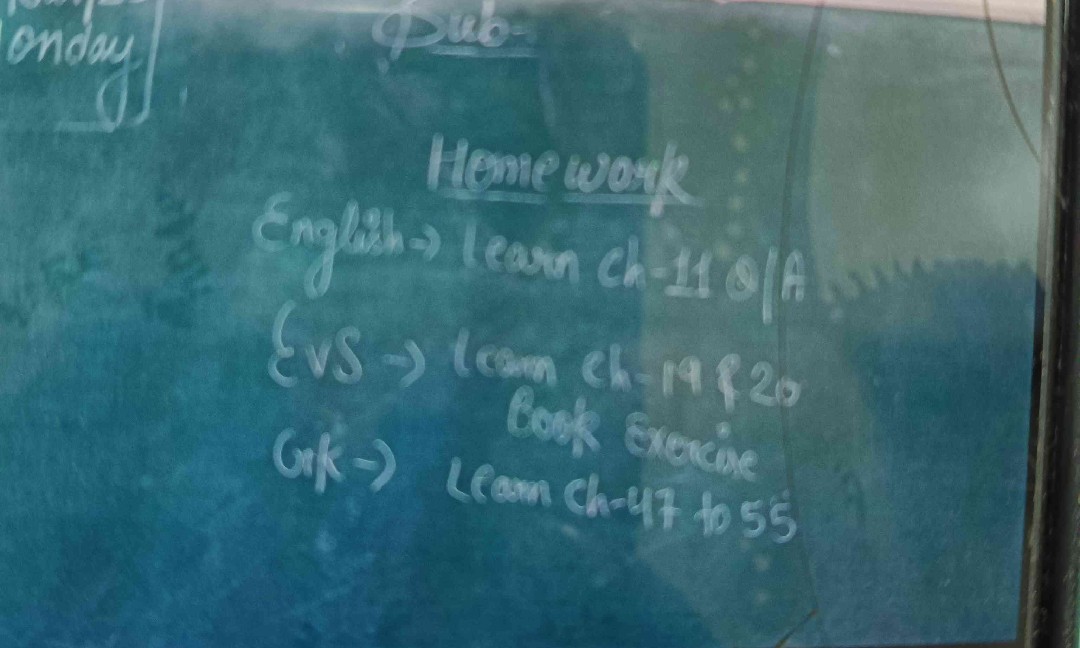 onday
Sub-
Homework
English → Learn Ch-11 Q/A
EVS → Learn Ch-19 & 20
Book Exercise
Gk → Learn Ch-47 to 55